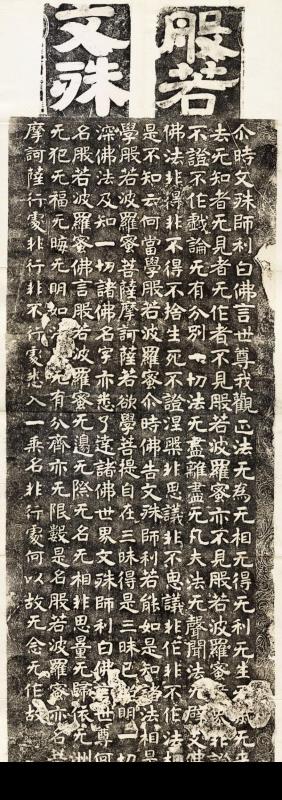 般若
文殊
尒時文殊師利白佛言世尊我觀正法无為无相无得无利无生无来
去无知者无見者无作者不見般若波羅蜜亦不見般若波羅蜜非證
不證不作戲論无有分別一切法无盡離盡无凡夫法无聲聞法无辟支佛
佛法非得非不得不捨生死不證涅槃非思議非不思議非作非不作法相
是不知云何當學般若波羅蜜尒時佛告文殊師利若能如是知諸法相是
學般若波羅蜜菩薩摩訶薩若欲學菩提自在三昧得是三昧已照明一切
深佛法及知一切諸佛名字亦悉了達諸佛世界文殊師利白佛言世尊何
名般若波羅蜜佛言般若波羅蜜无邊无際无名无相非思量无歸依无洲
无犯无福无晦无明如法无有分齊亦无限數是名般若波羅蜜亦名菩
摩訶薩行處非行非不行處悉入一乘名非行處何以故无念无作故